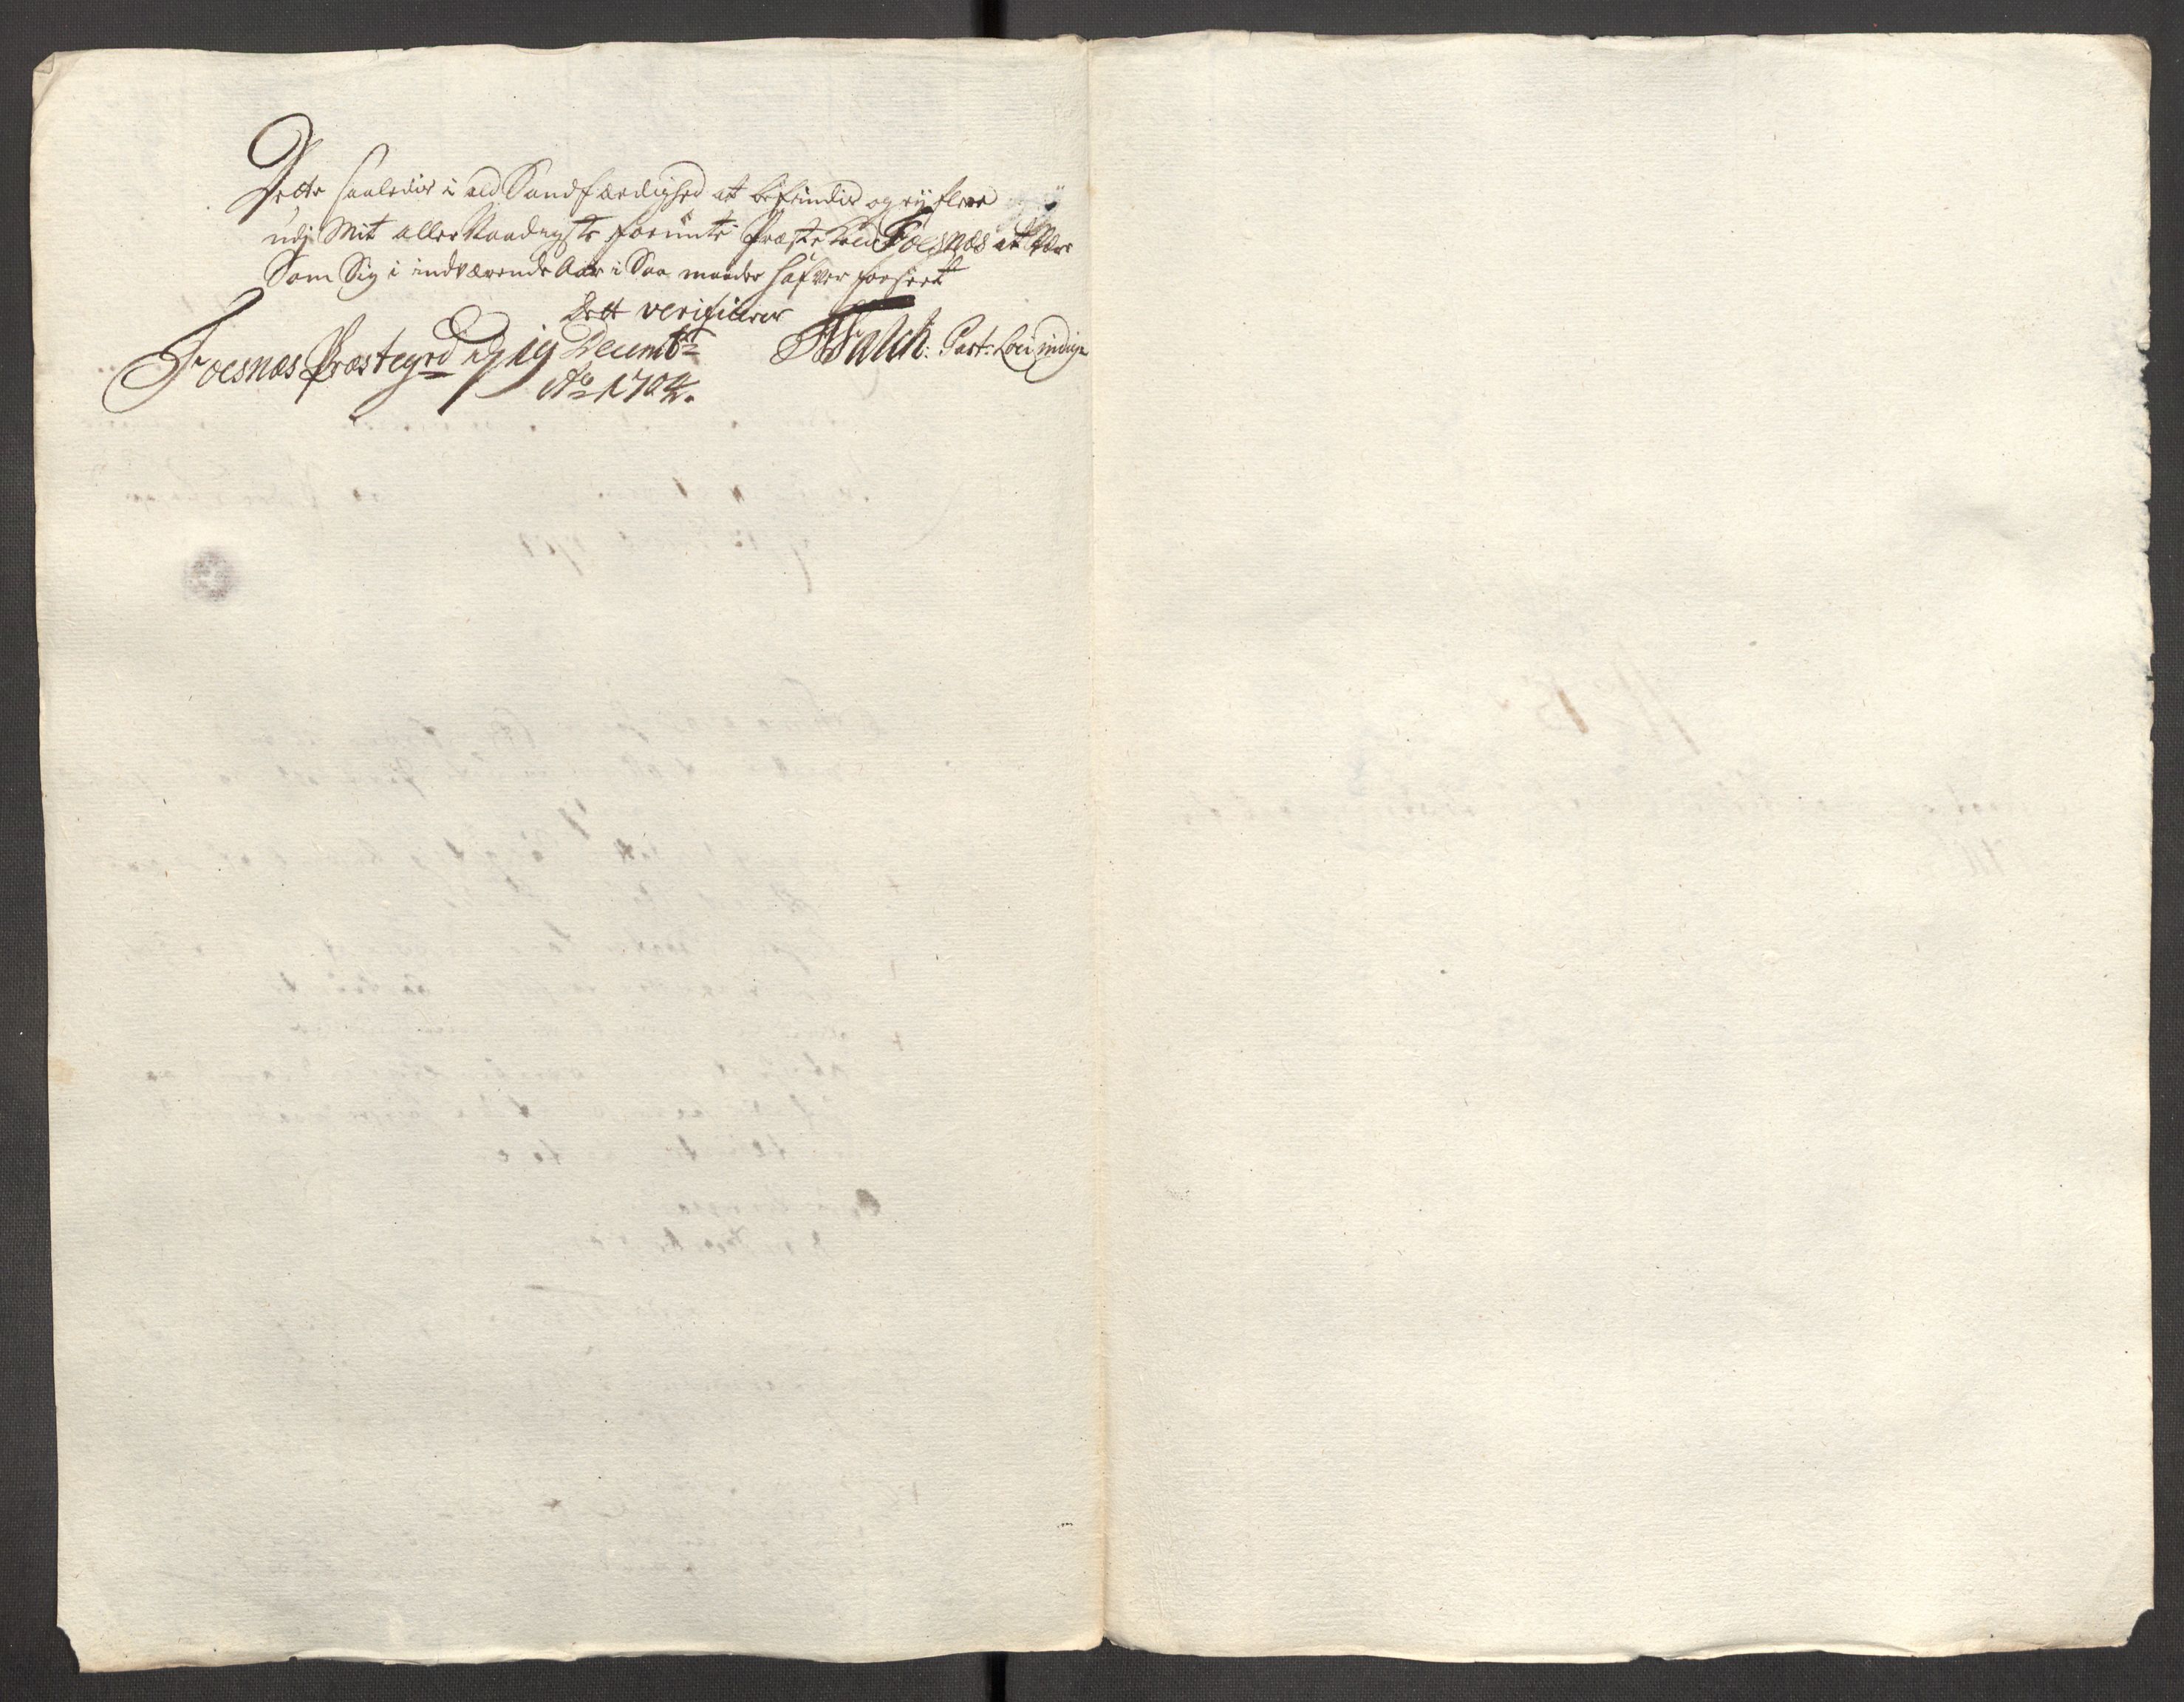 Dette saaledis i ald Sandfærdighed at befindis og ej flere
udj Mit aller Naadigste forunte Præste Kald Foesnæs at Være
Som Sig i indværende Aar i Saa maader hafver
Dett verificerer
Foesnæs Præstegrd dj 19 Decembr
Ao 1704.
Falch: Past: Loci indign